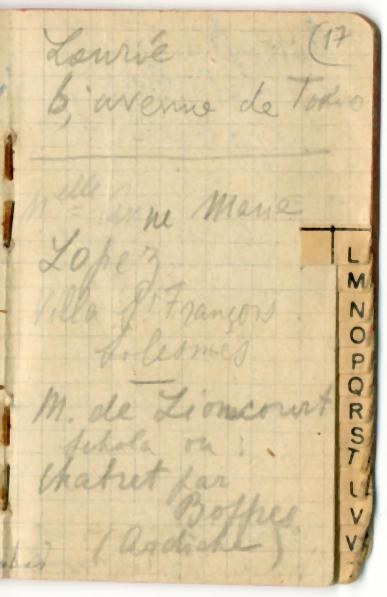 (17
Lourié
6, avenue de Tokio
Melle Anne Marie
Lopez
Villa St François
Solesmes
M. de Lioncourt
Schola ou :
Chabret par
Boffres
(Ardèche)
L
M
N
O
P
Q
R
S
T
U
V
V